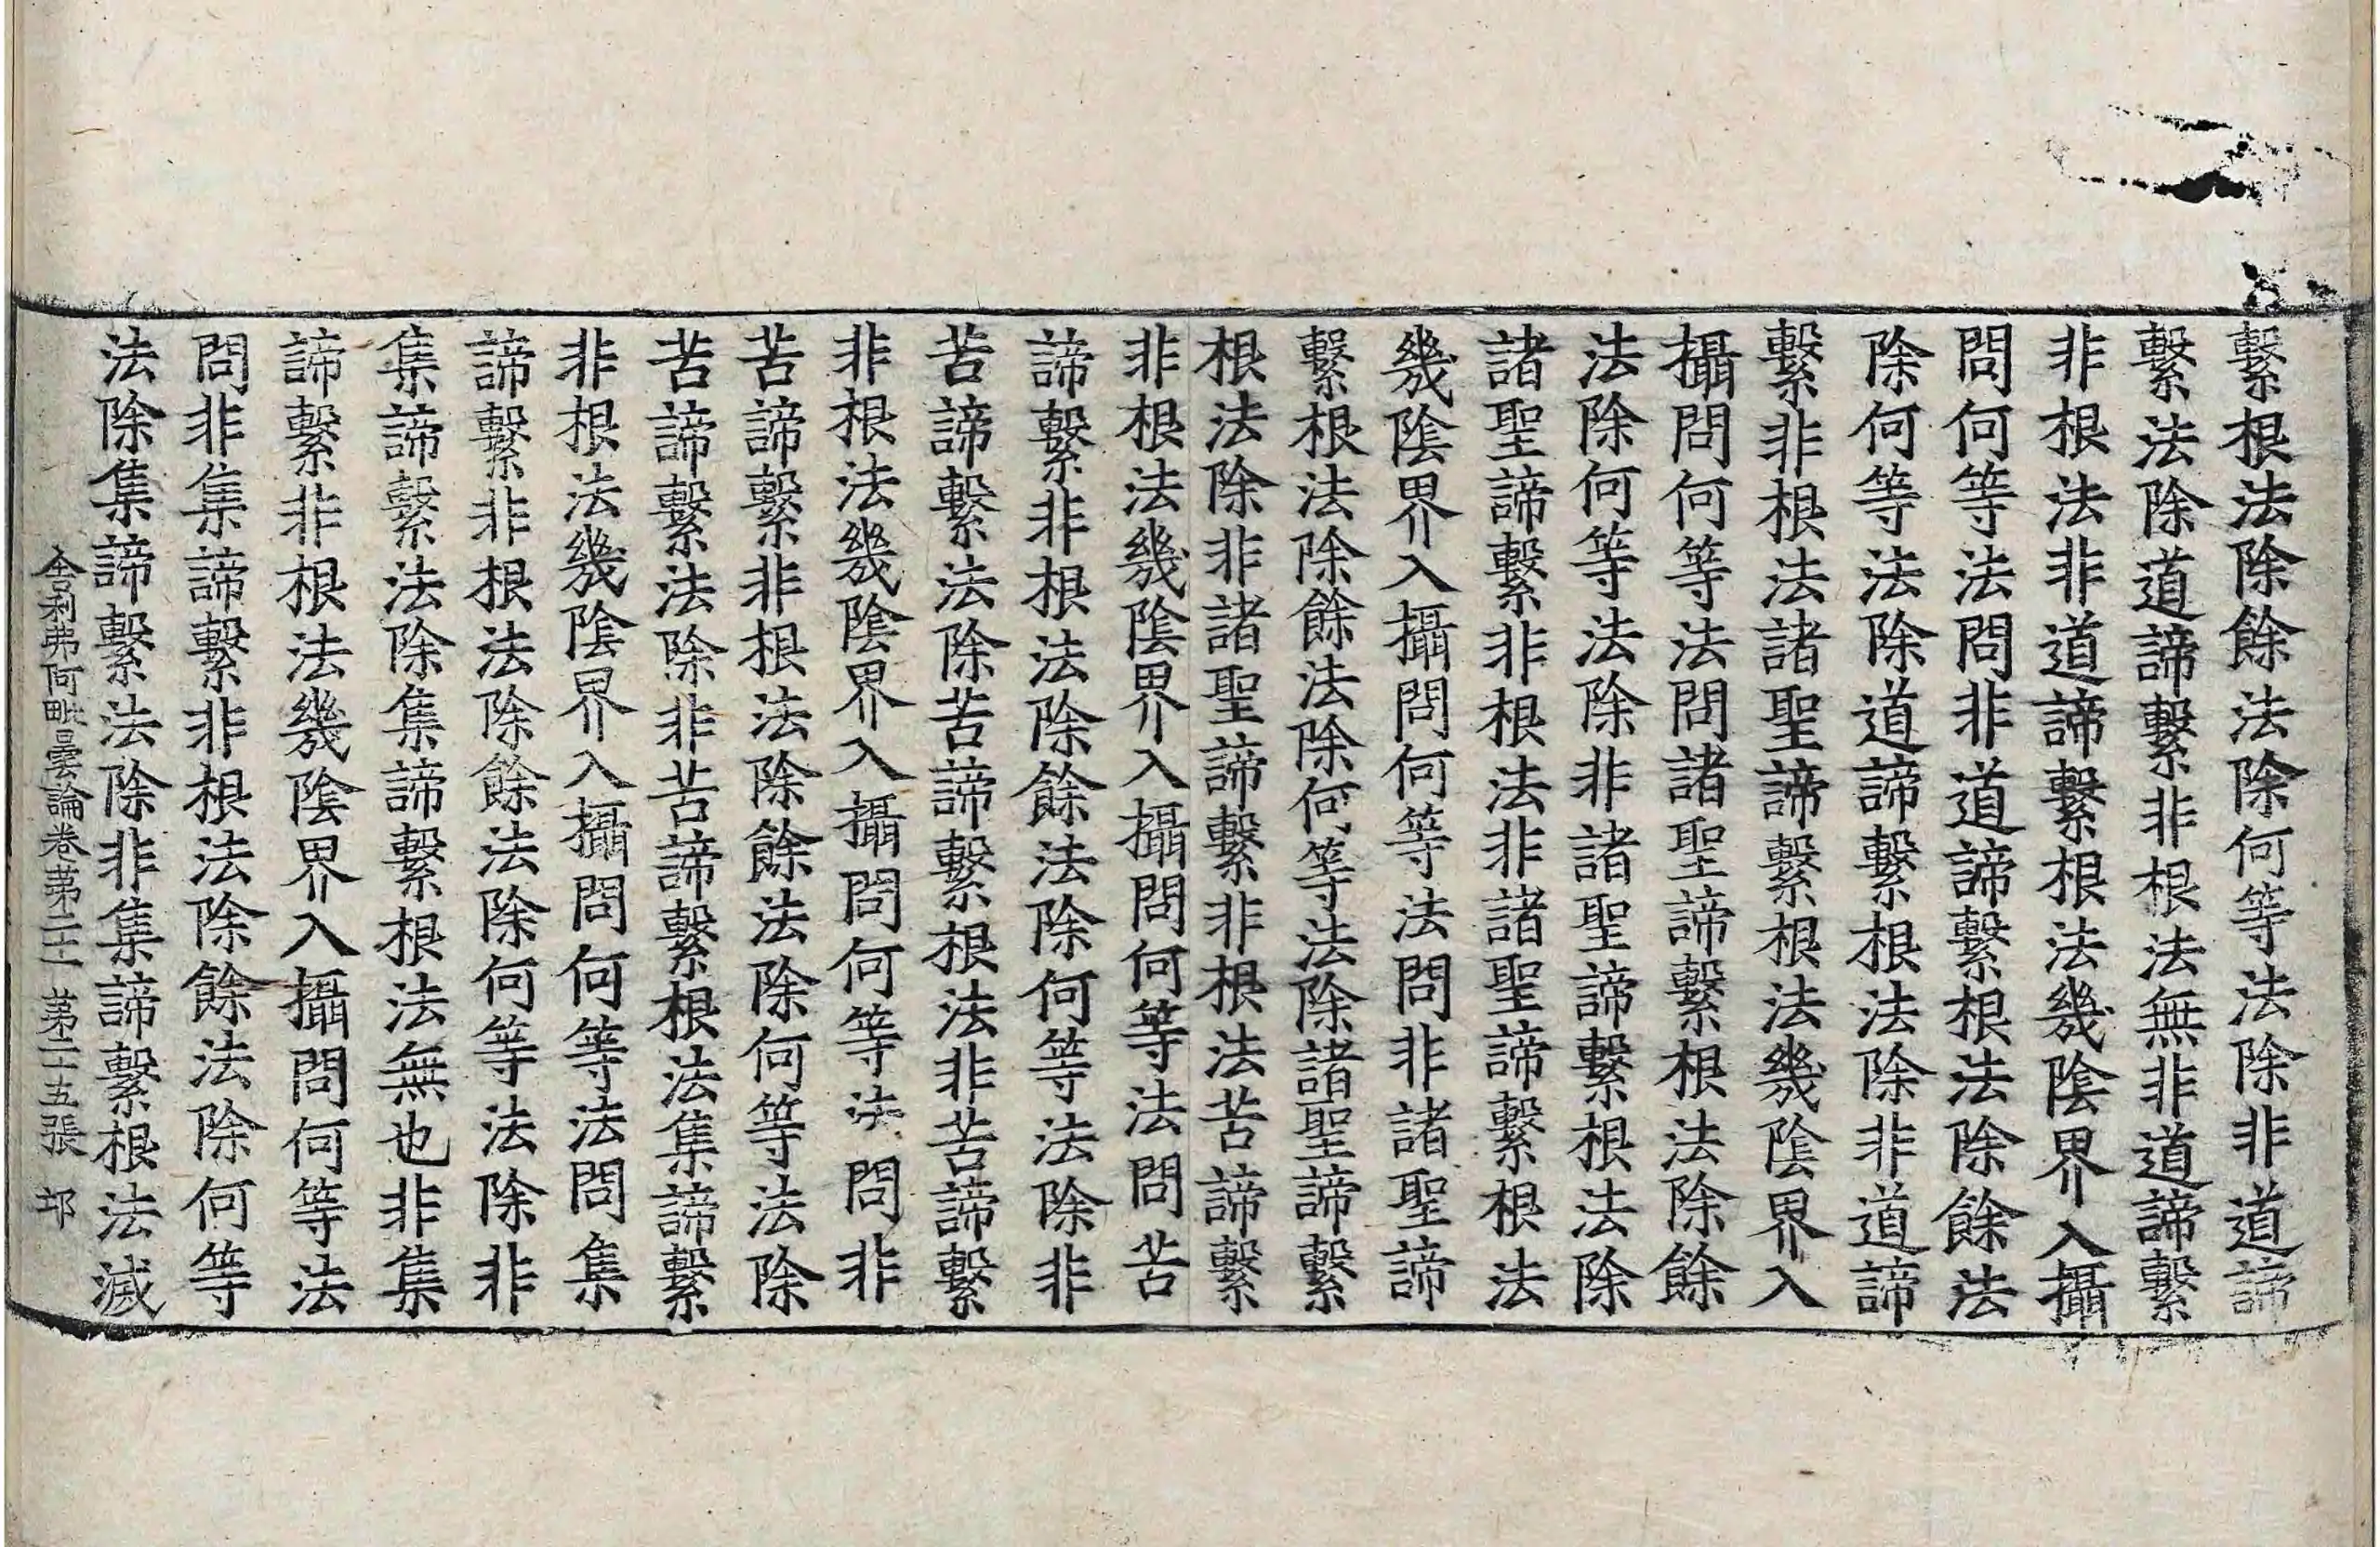 繫根法除餘法除何等法除非道諦
繫法除道諦繫非根法無非道諦繫
非根法非道諦繫根法幾陰界入攝
問何等法問非道諦繫根法除餘法
除何等法除道諦繫根法除非道諦
繫非根法諸聖諦繫根法幾陰界入
攝問何等法問諸聖諦繫根法除餘
法除何等法除非諸聖諦繫根法除
諸聖諦繫非根法非諸聖諦繫根法
幾陰界入攝問何等法問非諸聖諦
繫根法除餘法除何等法除諸聖諦繫
根法除非諸聖諦繫非根法苦諦繫
非根法幾陰界入攝問何等法問苦
諦繫非根法除餘法除何等法除非
苦諦繫法除苦諦繫根法非苦諦繫
非根法幾陰界入攝問何等法問非
苦諦繫非根法除餘法除何等法除
苦諦繫法除非苦諦繫根法集諦繫
非根法幾陰界入攝問何等法問集
諦繫非根法除餘法除何等法除非
集諦繫法除集諦繫根法無也非集
諦繫非根法幾陰界入攝問何等法
問非集諦繫非根法除餘法除何等
法除集諦繫法除非集諦繫根法滅
舍利弗阿毗曇論卷第二十二 第二十五張 邙